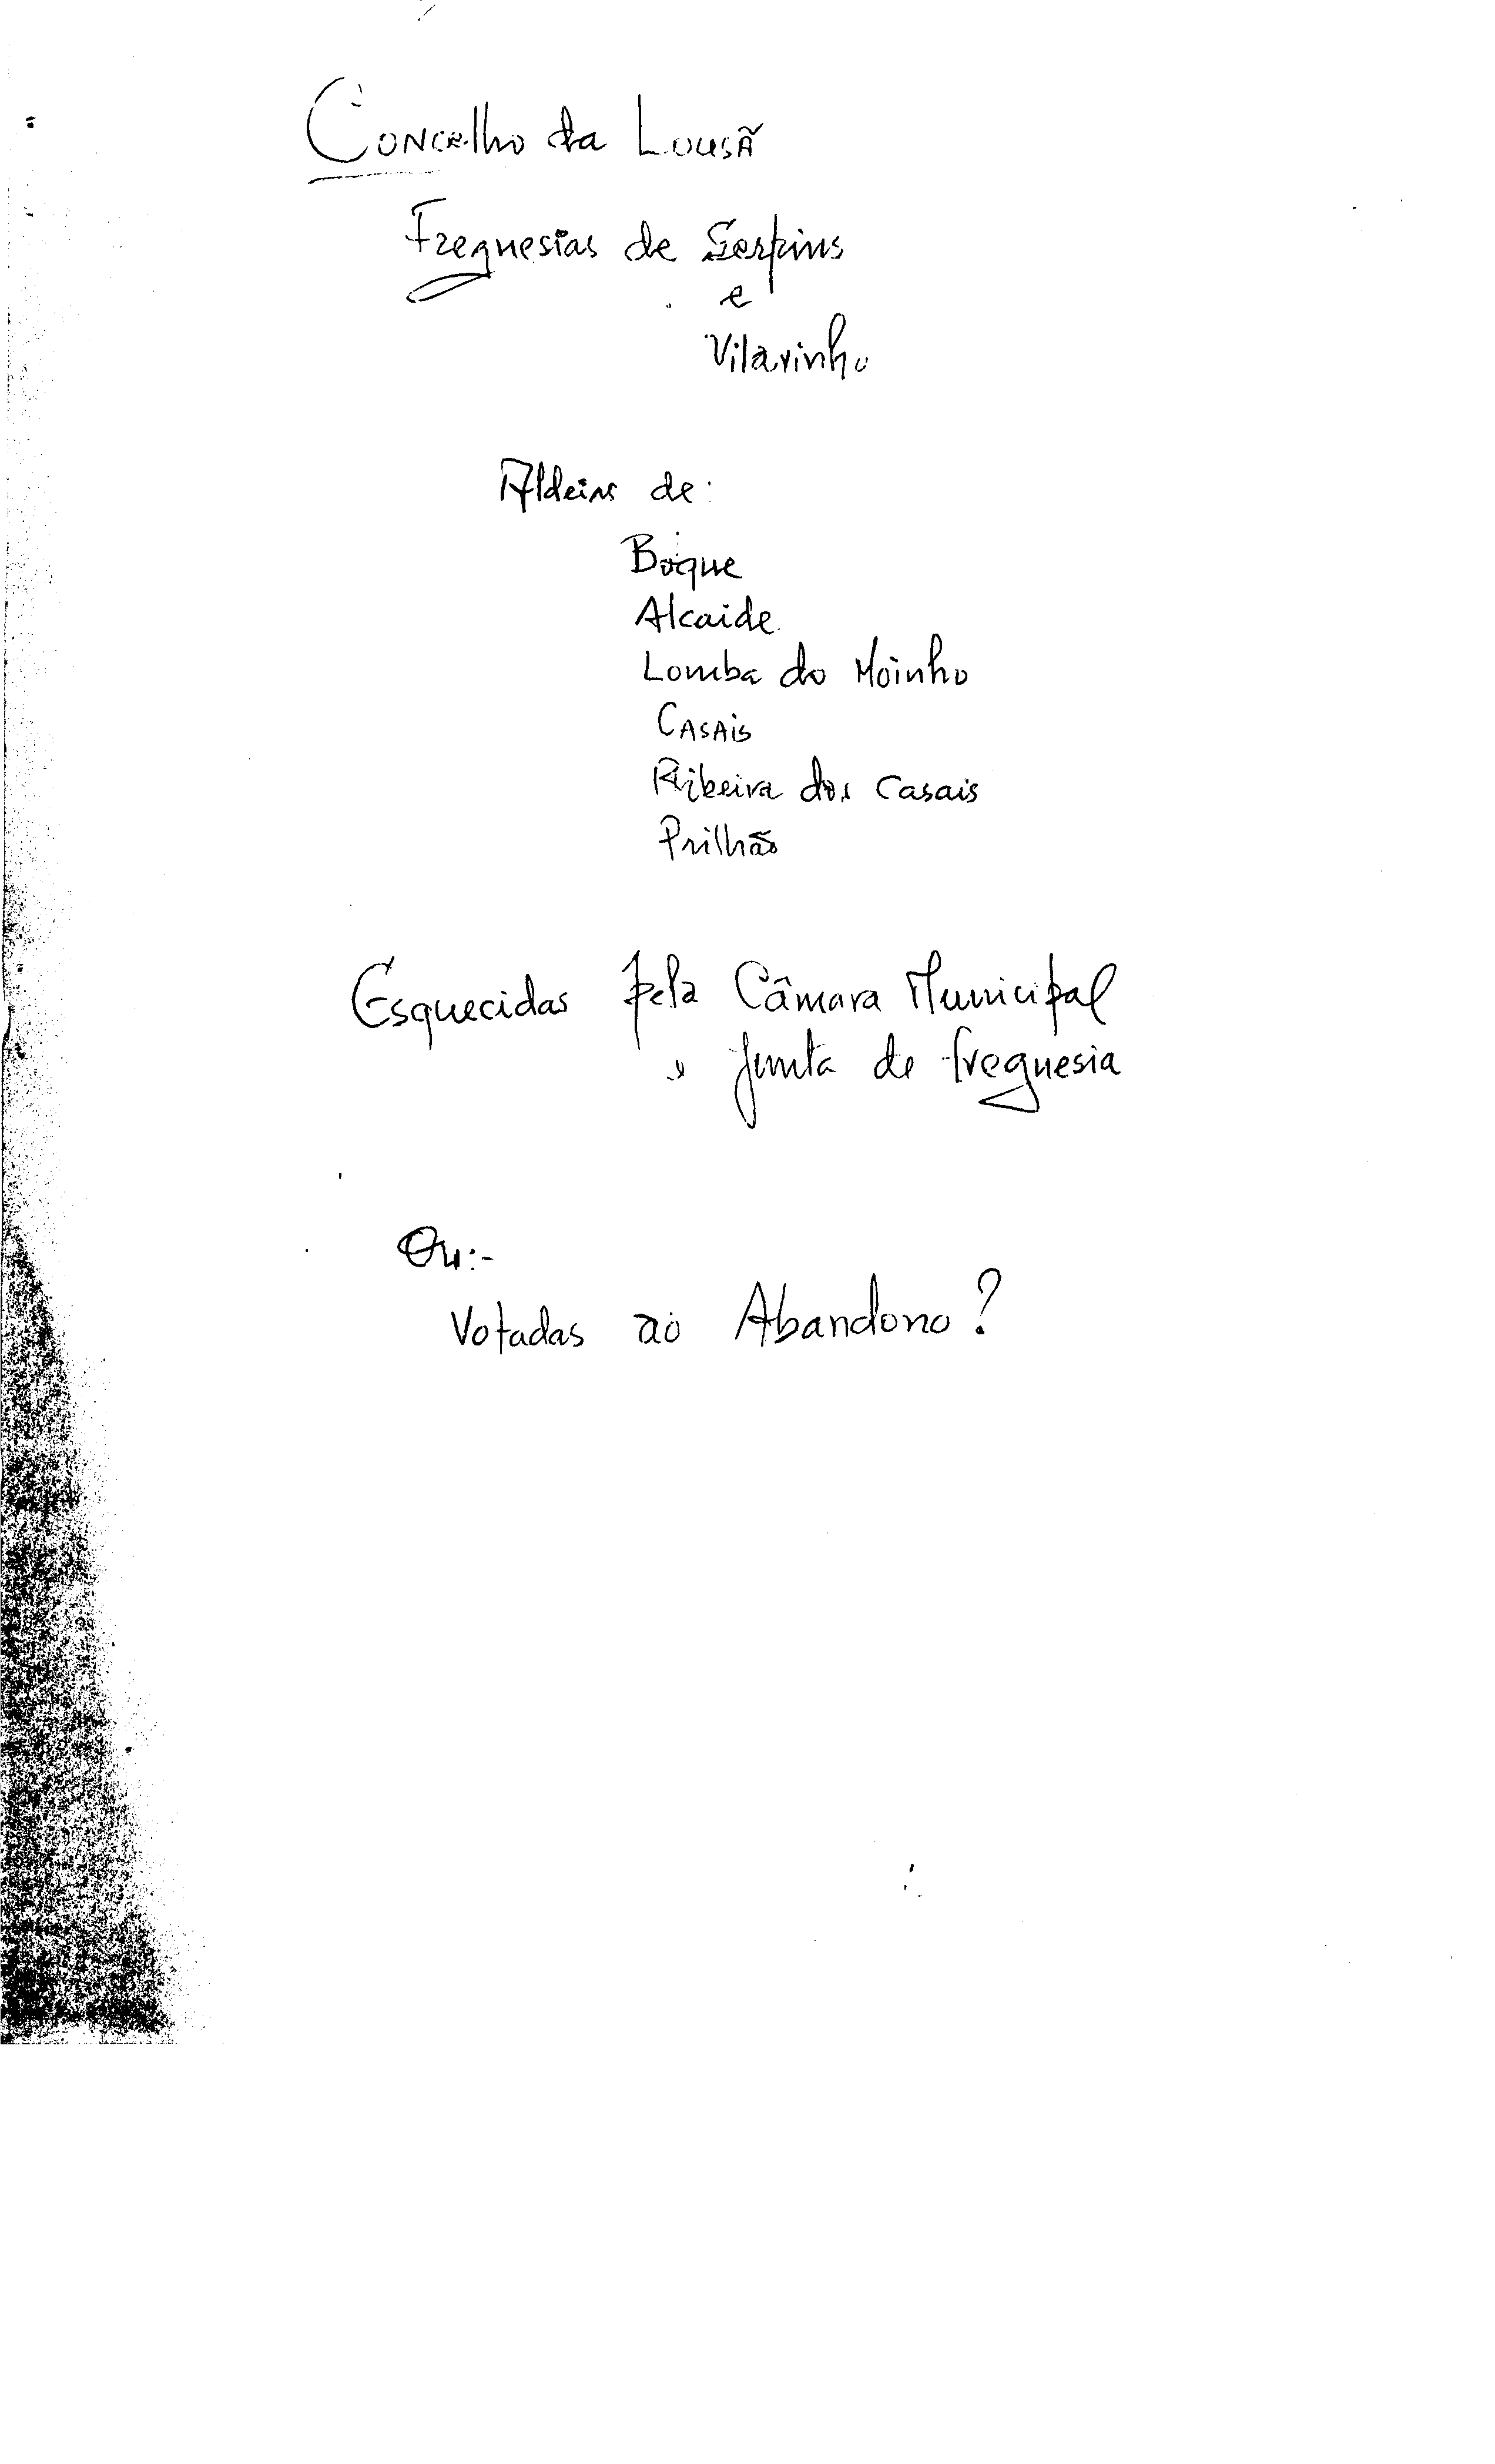 Concelho da Lousã
Freguesias de Serpins
e
Vilarinho
Aldeias de:
Boque
Alcaide
Lomba do Moinho
Casais
Ribeira dos Casais
Prilhão
Esquecidas pela Câmara Municipal
" Junta de freguesia
Ou:-
Votadas ao Abandono?